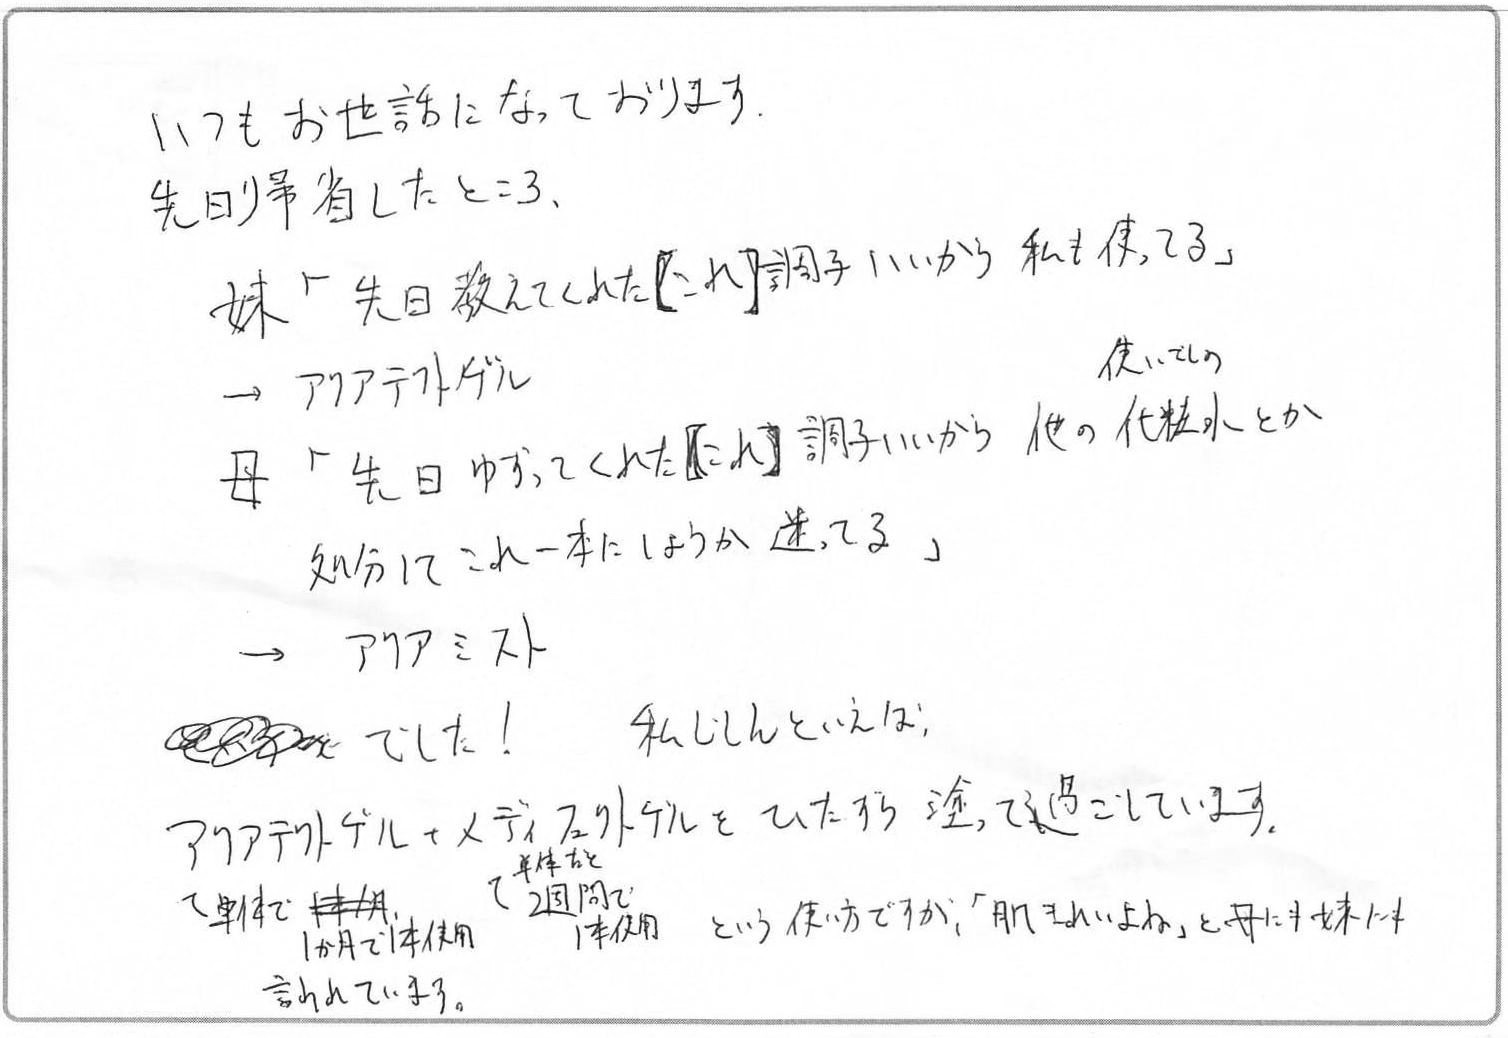 いつもお世話になっております.
先日帰省したところ、
妹「先日教えてくれた【これ】調子いいから 私も使ってる」
→ アクアテクトゲル
使いさしの
母「先日ゆずってくれた【これ】調子いいから 他の化粧水とか
処分してこれ一本にしようか迷ってる」
→ アクアミスト
でした! 私じしんといえば、
アクアテクトゲル+メディフェクトゲルをひたすら塗って過ごしています。
単体で 1か月で1本使用
単体だと 2週間で 1本使用
という使い方ですが、「肌きれいよね」と母にも妹にも
言われています。